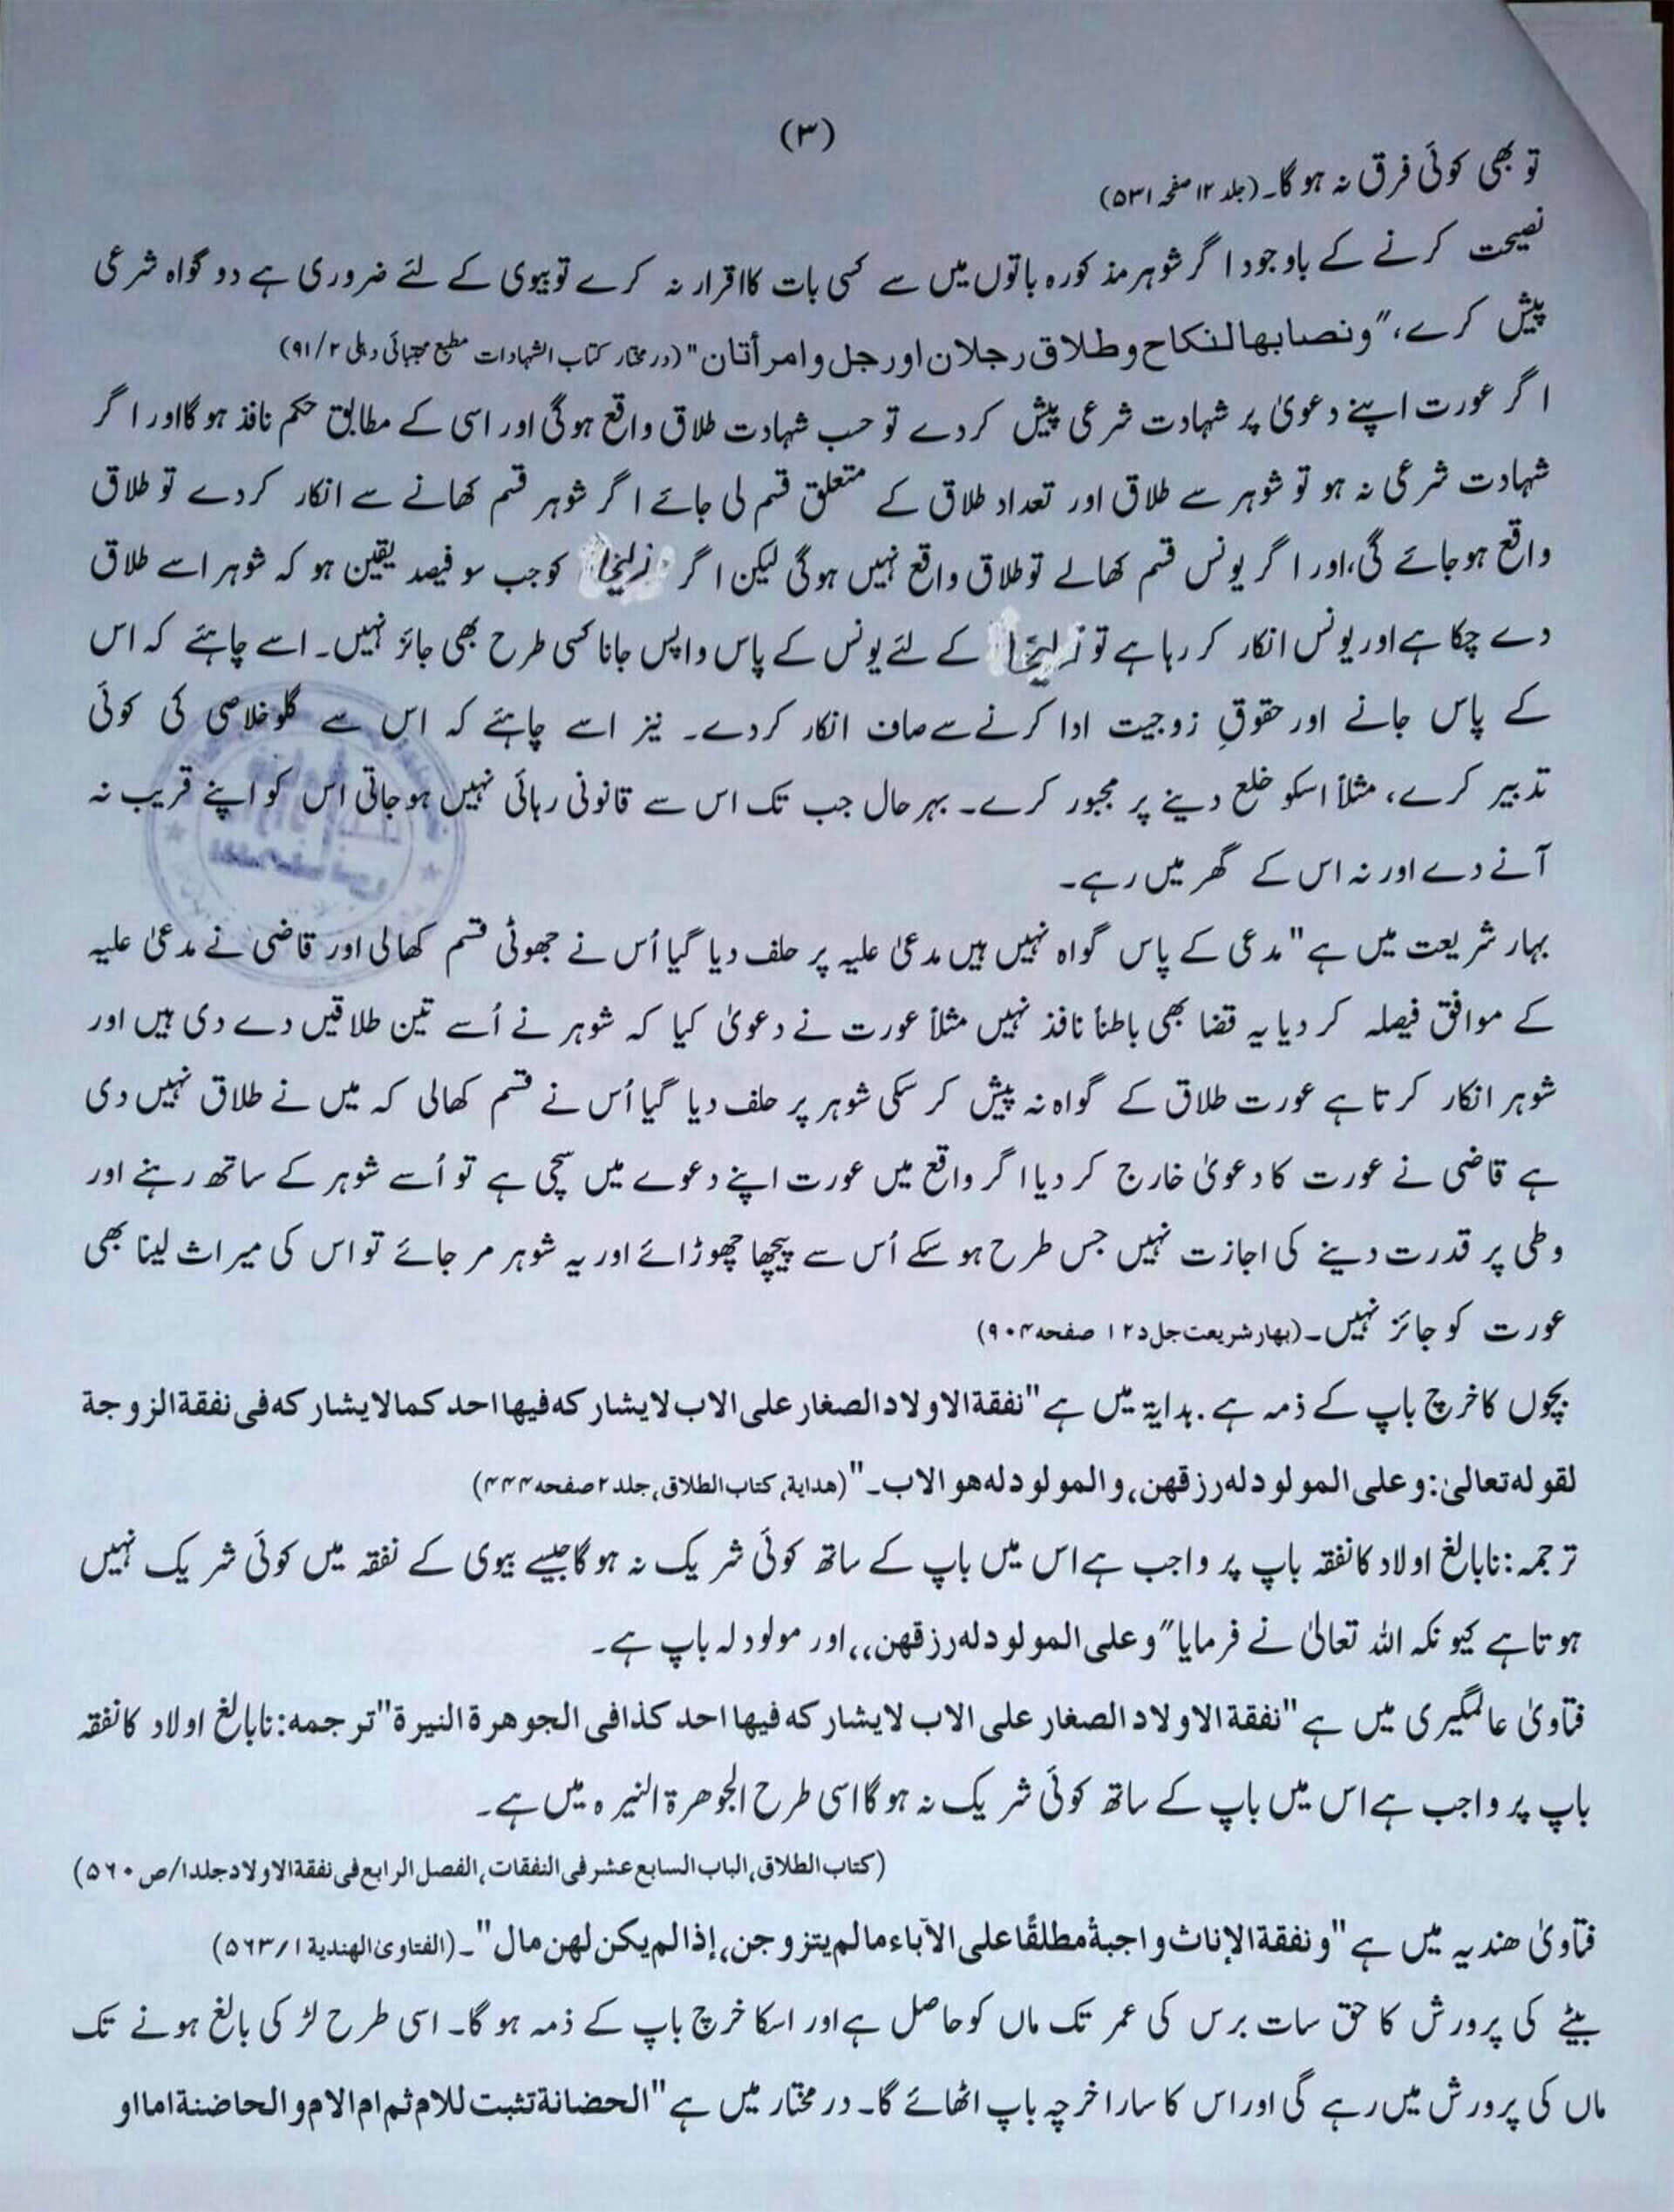 (۳)
تو بھی کوئی فرق نہ ہو گا۔ (جلد ۱۲ صفحہ ۵۳۱)
نصیحت کرنے کے باوجود اگر شوہر مذکورہ باتوں میں سے کسی بات کا اقرار نہ کرے تو بیوی کے لئے ضروری ہے دو گواہ شرعی
پیش کرے، "ونصابها لنكاح وطلاق رجلان اور جل وامرأتان" (در مختار کتاب الشہادات مطبع مجتبائی دہلی ۲/ ۹۱)
اگر عورت اپنے دعویٰ پر شہادت شرعی پیش کردے تو حسب شہادت طلاق واقع ہوگی اور اسی کے مطابق حکم نافذ ہوگا اور اگر
شہادت شرعی نہ ہو تو شوہر سے طلاق اور تعداد طلاق کے متعلق قسم لی جائے اگر شوہر قسم کھانے سے انکار کردے تو طلاق
واقع ہوجائے گی، اور اگر یونس قسم کھالے تو طلاق واقع نہیں ہوگی لیکن اگر زلیخا کو جب سو فیصد یقین ہو کہ شوہر اسے طلاق
دے چکا ہے اور یونس انکار کر رہا ہے تو زلیخا کے لئے یونس کے پاس واپس جانا کسی طرح بھی جائز نہیں۔ اسے چاہئے کہ اس
کے پاس جانے اور حقوقِ زوجیت ادا کرنے سے صاف انکار کردے۔ نیز اسے چاہئے کہ اس سے گلو خلاصی کی کوئی
تدبیر کرے، مثلاً اسکو خلع دینے پر مجبور کرے۔ بہر حال جب تک اس سے قانونی رہائی نہیں ہوجاتی اس کو اپنے قریب نہ
آنے دے اور نہ اس کے گھر میں رہے۔
بہار شریعت میں ہے "مدعی کے پاس گواہ نہیں ہیں مدعیٰ علیہ پر حلف دیا گیا اُس نے جھوٹی قسم کھالی اور قاضی نے مدعیٰ علیہ
کے موافق فیصلہ کر دیا یہ قضا بھی باطناً نافذ نہیں مثلاً عورت نے دعویٰ کیا کہ شوہر نے اُسے تین طلاقیں دے دی ہیں اور
شوہر انکار کرتا ہے عورت طلاق کے گواہ نہ پیش کر سکی شوہر پر حلف دیا گیا اُس نے قسم کھالی کہ میں نے طلاق نہیں دی
ہے قاضی نے عورت کا دعویٰ خارج کر دیا اگر واقع میں عورت اپنے دعوے میں سچی ہے تو اُسے شوہر کے ساتھ رہنے اور
وطی پر قدرت دینے کی اجازت نہیں جس طرح ہو سکے اُس سے پیچھا چھوڑائے اور یہ شوہر مر جائے تو اس کی میراث لینا بھی
عورت کو جائز نہیں۔ (بهار شریعت جلد ۱۲ صفحه ۹۰۴)
بچوں کا خرچ باپ کے ذمہ ہے. ہدایۃ میں ہے "نفقة الاولاد الصغار على الاب لا يشاركه فيها احد كما لا يشاركه فى نفقة الزوجة
لقوله تعالىٰ: وعلى المولود له رزقهن، والمولود له هو الاب۔" (هداية، كتاب الطلاق، جلد ۲ صفحه ۴۴۴)
ترجمہ: نابالغ اولاد کا نفقہ باپ پر واجب ہے اس میں باپ کے ساتھ کوئی شریک نہ ہوگا جیسے بیوی کے نفقہ میں کوئی شریک نہیں
ہوتا ہے کیونکہ اللہ تعالیٰ نے فرمایا "وعلى المولود له رزقهن،، اور مولود لہ باپ ہے۔
فتاویٰ عالمگیری میں ہے "نفقة الاولاد الصغار على الاب لا يشاركه فيها احد كذا فى الجوهرة النيرة" ترجمه: نابالغ اولاد کا نفقہ
باپ پر واجب ہے اس میں باپ کے ساتھ کوئی شریک نہ ہوگا اسی طرح الجوھرۃ النیرہ میں ہے۔
(كتاب الطلاق، الباب السابع عشر فى النفقات، الفصل الرابع فى نفقة الاولاد جلد ۱/ ص ۵۶۰)
فتاویٰ ھندیہ میں ہے "ونفقة الإناث واجبةٌ مطلقًا على الآباء مالم يتزوجن، إذا لم يكن لهن مال"۔ (الفتاوىٰ الهندية ۱/ ۵۶۳)
بیٹے کی پرورش کا حق سات برس کی عمر تک ماں کو حاصل ہے اور اسکا خرچ باپ کے ذمہ ہوگا۔ اسی طرح لڑکی بالغ ہونے تک
ماں کی پرورش میں رہے گی اور اس کا سارا خرچہ باپ اٹھائے گا۔ در مختار میں ہے "الحضانة تثبت للام ثم ام الام والحاضنة اما او